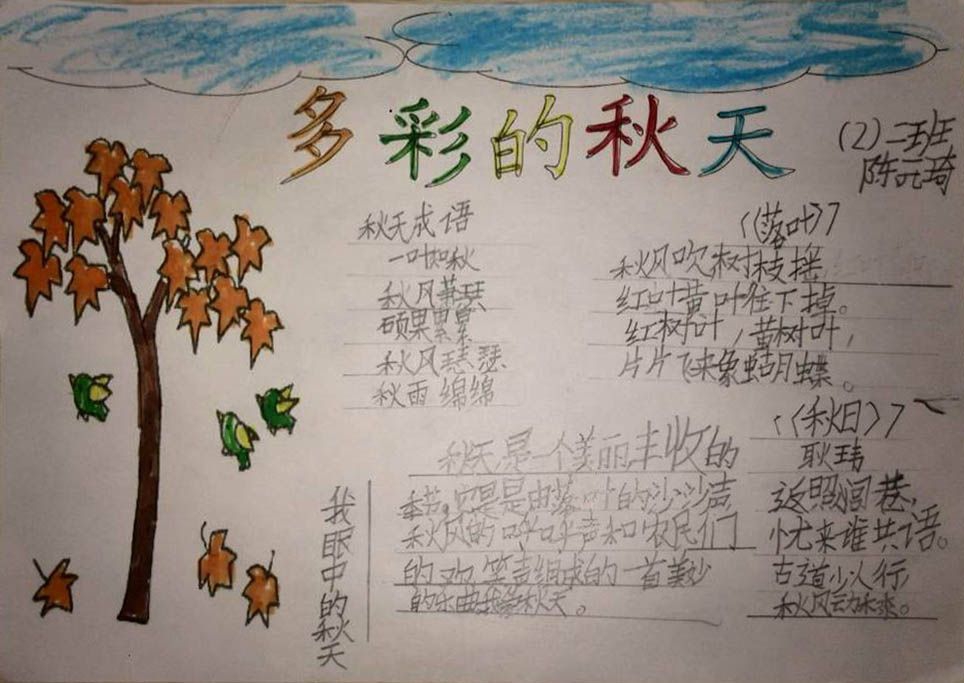 多彩的秋天
(2)二班
陈元琦
秋天成语
一叶知秋
秋风萧瑟
硕果累累
秋风瑟瑟
秋雨绵绵
《落叶》
秋风吹,树枝摇,
红叶黄叶往下掉。
红树叶,黄树叶,
片片飞来象蝴蝶。
《秋日》
耿玮
返照闾巷,
忧来谁共语。
古道少人行,
秋风动禾黍。
我眼中的秋天
秋天,是一个美丽丰收的
季节,它是由落叶的沙沙声
秋风的呼呼声和农民们
的欢笑声组成的一首美妙
的乐曲我爱秋天。